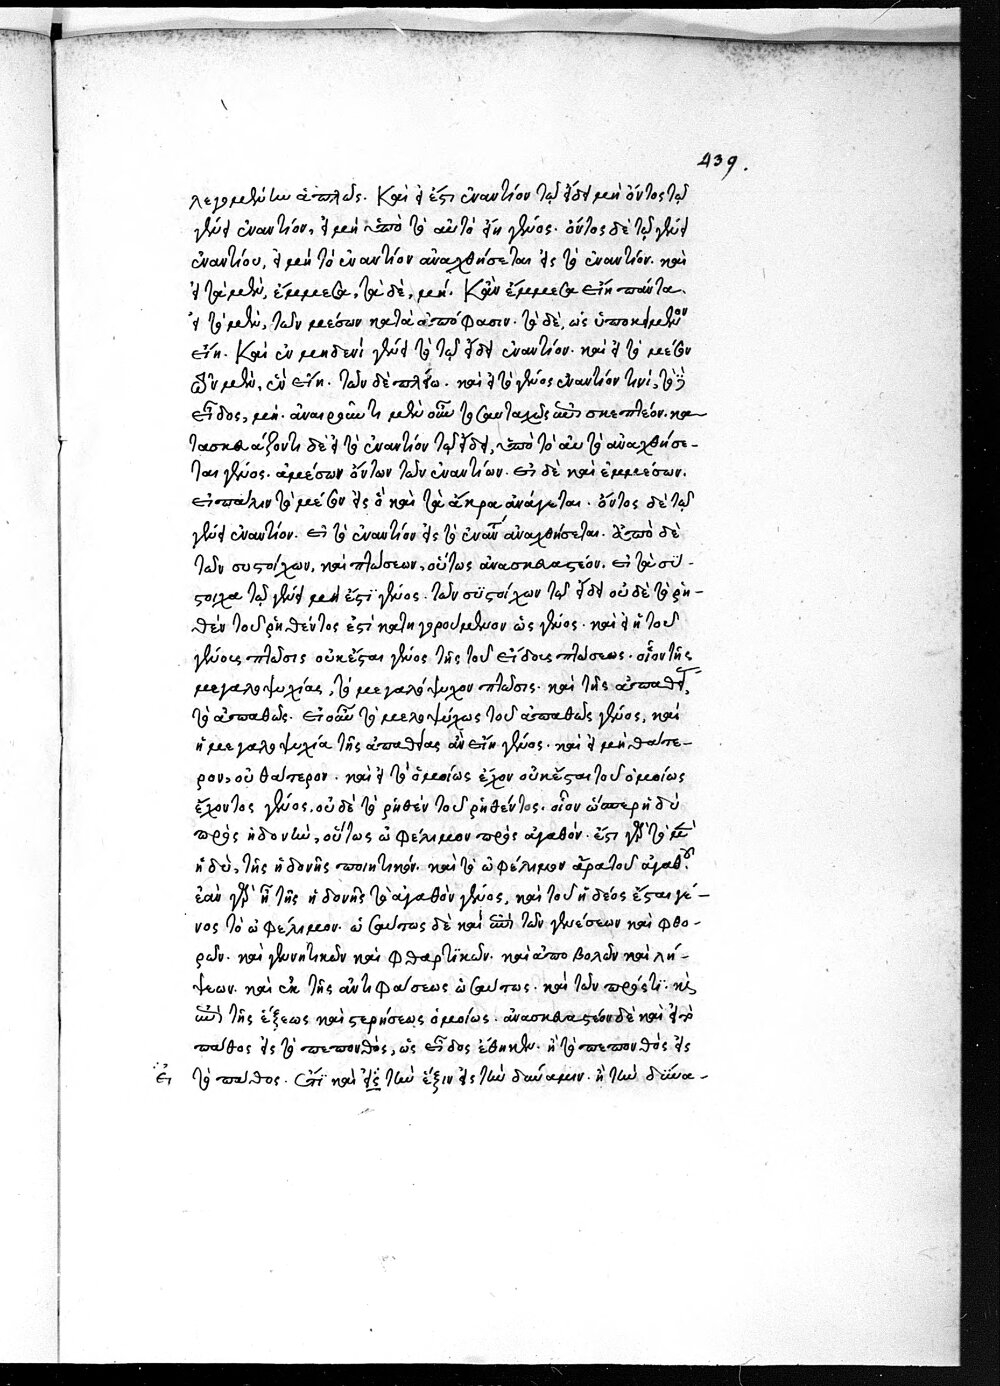 439.
λεγομένων ἁπλῶς. Καὶ εἰ ἔστι ἐναντίον τῷ εἴδει μὴ ὄντος τῷ
γένει ἐναντίον, εἰ μὴ ὑπὸ τὸ αὐτὸ εἴη γένος. ὄντος δὲ τῷ γένει
ἐναντίου, εἰ μὴ τὸ ἐναντίον ἀναχθήσεται εἰς τὸ ἐναντίον. καὶ
εἰ τὰ μὲν, ἔμμεσα, τὰ δὲ, μή. Κἂν ἔμμεσα εἴη πάντα.
εἰ τὸ μὲν, τῶν μέσων κατὰ ἀπόφασιν. τὸ δὲ, ὡς ὑποκείμενον
εἴη. Καὶ ἐν μηδενὶ γένει τὸ τῷ εἴδει ἐναντίον. καὶ εἰ τὸ μέσον
μὲν, ἓν εἴη. τῶν δὲ πλείω. καὶ εἰ τὸ γένος ἐναντίον τινί, τὸ δὲ
εἶδος, μή. ἀναιροῦντι μὲν οὖν τοσαυταχῶς ἐπισκεπτέον. κα-
τασκευάζοντι δὲ εἰ τὸ ἐναντίον τῷ εἴδει, ὑπὸ τὸ αὐτὸ ἀναχθήσε-
ται γένος. ἀμέσων ὄντων τῶν ἐναντίων. εἰ δὲ καὶ ἐμμέσων.
εἰ πάλιν τὸ μέσον εἰς ὃ καὶ τὰ ἄκρα ἀνάγεται. ὄντος δὲ τῷ
γένει ἐναντίον. εἰ τὸ ἐναντίον εἰς τὸ ἐναντίον ἀναχθήσεται. Ἀπὸ δὲ
τῶν συστοίχων, καὶ πτώσεων, οὕτως ἀνασκευαστέον. εἰ τὰ σύ-
στοιχα τῷ γένει μή ἐστι γένος. τῶν συστοίχων τῷ εἴδει οὐδὲ τὸ ῥη-
θὲν τοῦ ῥηθέντος ἐστὶ κατηγορούμενον ὡς γένος. καὶ εἰ ἡ τοῦ
γένους πτῶσις οὐκ ἔσται γένος τῆς τοῦ εἴδους πτώσεως. οἷον τῆς
μεγαλοψυχίας, τὸ μεγαλόψυχον πτῶσις. καὶ τῆς ἀπαθείας,
τὸ ἀπαθῶς. εἰ οὖν τὸ μελοψύχως τοῦ ἀπαθῶς γένος, καὶ
ἡ μεγαλοψυχία τῆς ἀπαθείας ἂν εἴη γένος. καὶ εἰ μὴ θάτε-
ρον, οὐ θάτερον. καὶ εἰ τὸ ὁμοίως ἔχον οὐκ ἔσται τοῦ ὁμοίως
ἔχοντος γένος. οὐδὲ τὸ ῥηθὲν τοῦ ῥηθέντος. οἷον ὥσπερ ἡδὺ
πρὸς ἡδονὴν, οὕτως ὠφέλιμον πρὸς ἀγαθόν. ἔστι γὰρ τὸ μὲν
ἡδὺ, τῆς ἡδονῆς ποιητικόν. καὶ τὸ ὠφέλιμον ἄρα τοῦ ἀγαθοῦ.
ἐὰν γὰρ ᾖ τῆς ἡδονῆς τὸ ἀγαθὸν γένος, καὶ τοῦ ἡδέος ἔσται γέ-
νος τὸ ὠφέλιμον. ὡσαύτως δὲ καὶ ἐπὶ τῶν γενέσεων καὶ φθο-
ρῶν. καὶ γεννητικῶν καὶ φθαρτικῶν. καὶ ἀποβολῶν καὶ λή-
ψεων. καὶ ἐκ τῆς ἀντιφάσεως ὡσαύτως. καὶ τῶν πρός τι. καὶ
ἐπὶ τῆς ἕξεως καὶ στερήσεως ὁμοίως. ἀνασκευαστέον δὲ καὶ εἰ τὸ
πάθος εἰς τὸ πεπονθὸς, ὡς εἶδος ἔθηκεν. ἢ τὸ πεπονθὸς εἰς
εἰ τὸ πάθος. ἔτι καὶ εἰς τὴν ἕξιν εἰς τὴν δύναμιν. ἢ τὴν δύνα-